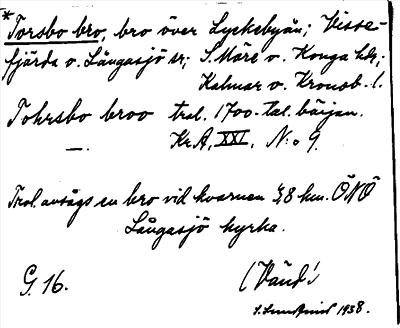 *Torsbo bro, bro över Lyckebyån; Visse-
fjärda o. Långasjö sr; S. Möre o. Konga hdr;
Kalmar o. Kronob. l.
Tohrsbo broo trol. 1700-tal. början.
— Kr.A, XXI, N:o 9.
Trol. avsågs en bro vid kvarnen 3,8 km. ÖNÖ
Långasjö kyrka.
G. 16. (Vänd!)
1938.